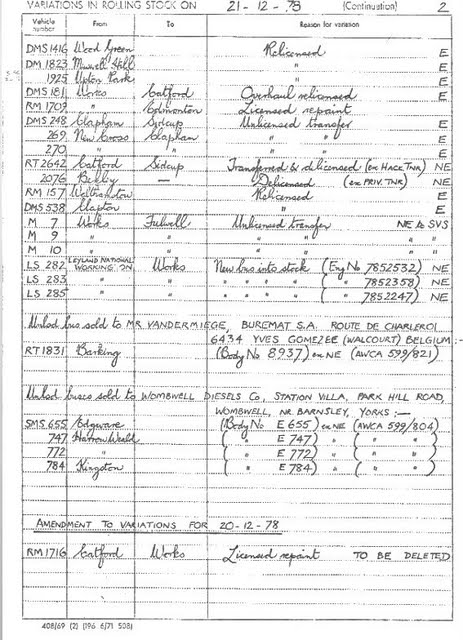 VARIATIONS IN ROLLING STOCK ON 21-12-78 (Continuation) 2
Vehicle number From To Reason for variation
DMS 1416 Wood Green Relicensed E
DM 1823 Muswell Hill " E
1925 Upton Park " E
DMS 181 Works Catford Overhaul relicensed E
RM 1709 " Edmonton Licensed repaint
DMS 248 Clapham Sidcup Unlicensed transfer E
269 New Cross Clapham " " E
270 " " " " E
RT 2642 Catford Sidcup Transferred & delicensed (ex HACK TNR) NE
2076 Bexley — Delicensed (ex PRIV. TNR) NE
RM 157 Walthamstow Relicensed E
DMS 538 Clapton " E
M 7 Works Fulwell Unlicensed transfer NE to SVS
M 9 " " " " " "
M 10 " " " " " "
LS 282 LEYLAND NATIONAL WORKINGTON Works New bus into stock (Eng No 7852532) NE
LS 283 " " " " " " ( " 7852358) NE
LS 285 " " " " " " ( " 7852247) NE
Unlcd bus sold to MR VANDERMIEGE, BUREMAT S.A. ROUTE DE CHARLEROI
6434 YVES GOMEZEE (WALCOURT) BELGIUM :-
RT 1831 Barking (Body No 8937) ex NE (AWCA 599/821)
Unlcd buses sold to WOMBWELL DIESELS Co, STATION VILLA, PARK HILL ROAD,
WOMBWELL, NR BARNSLEY, YORKS :—
SMS 655 Edgware (Body No E 655) ex NE (AWCA 599/804)
747 Harrow Weald ( " E 747) " ( " " )
772 " ( " E 772) " ( " " )
784 Kingston ( " E 784) " ( " " )
AMENDMENT TO VARIATIONS FOR 20-12-78
RM 1716 Catford Works Licensed repaint TO BE DELETED
408/69 (2) (196 6/71 50B)